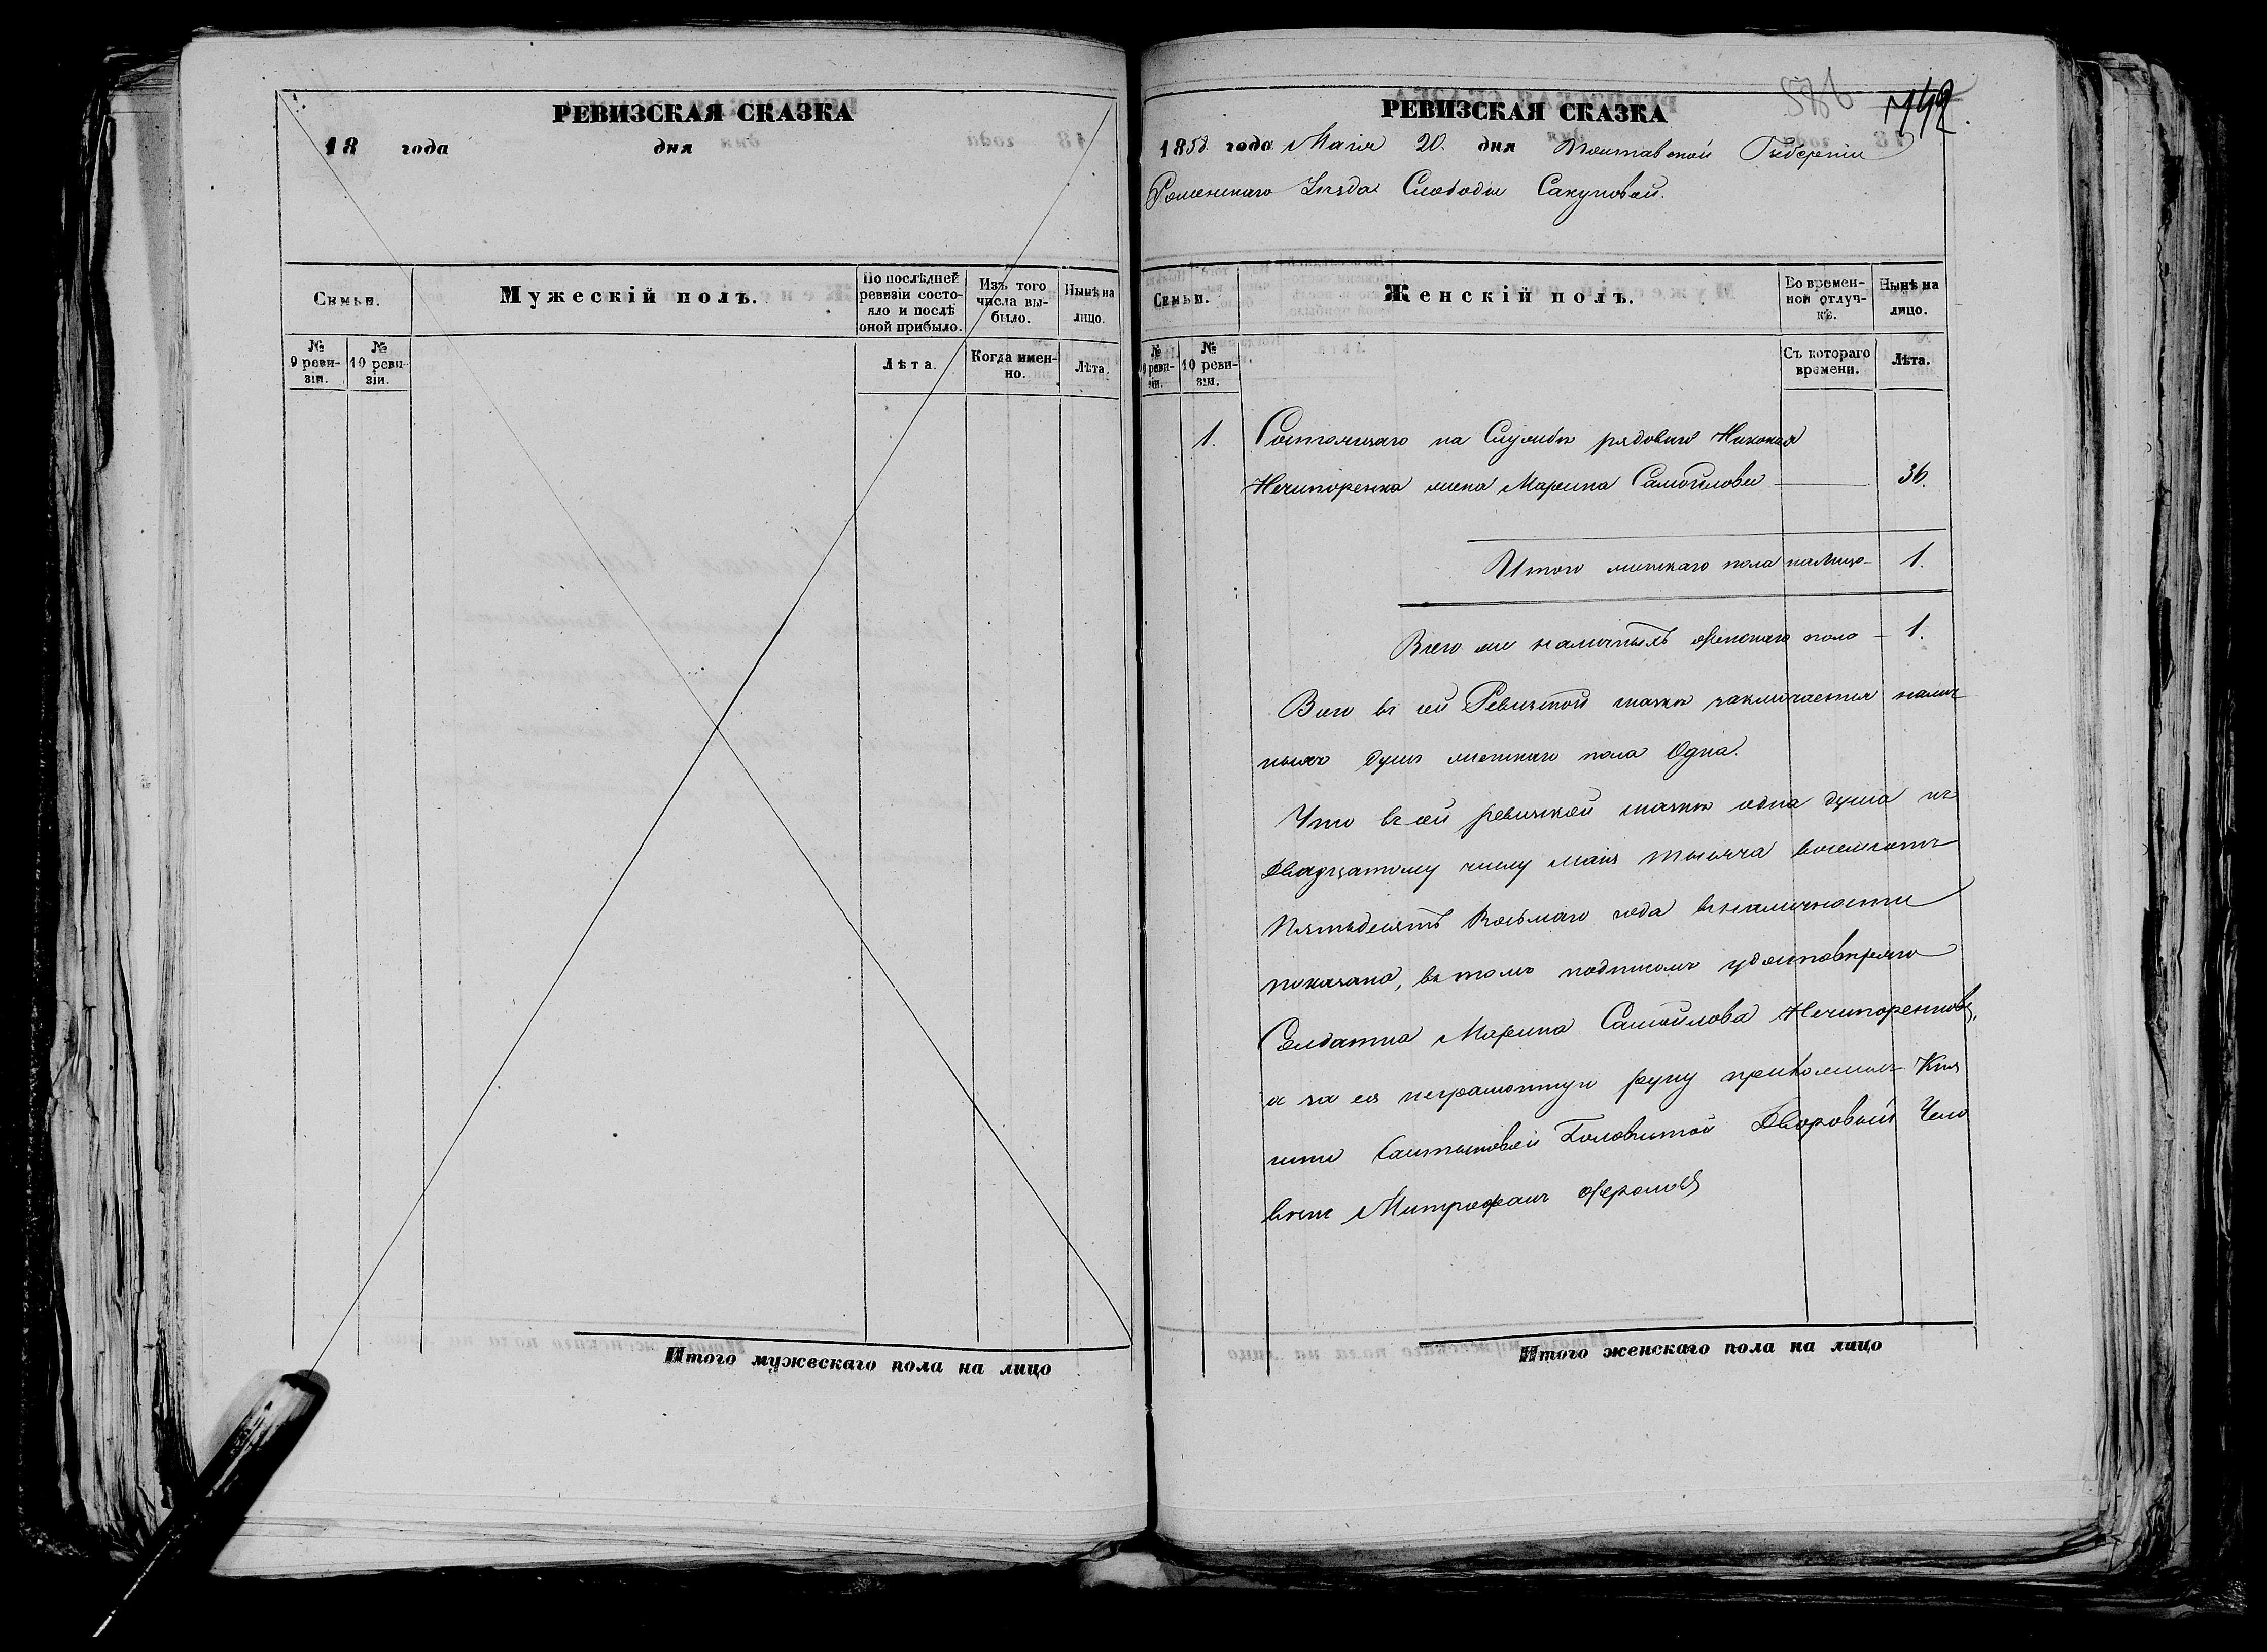 РЕВИЗСКАЯ СКАЗКА
18 года дня
Семьи.
Мужескій полъ.
По послѣдней ревизіи состояло и послѣ оной прибыло.
Изъ того числа выбыло.
Нынѣ на лицо.
№ 9 ревизіи.
№ 10 ревизіи.
Лѣта.
Когда именно.
Лѣта.
Итого мужескаго пола на лицо
742.
РЕВИЗСКАЯ СКАЗКА
1858. года Маія 20. дня Полтавской Губерніи
Роменскаго Уѣзда Слободы
Семьи.
Женскій полъ.
Во временной отлучкѣ.
Нынѣ на лицо.
№ 9 ревизіи.
№ 10 ревизіи.
Съ котораго времени.
Лѣта.
1. Состоящаго на Службѣ рядоваго Николая
Нечипоренка жена Марина Самойлова 36.
Итого женскаго пола налицо 1.
Всего же наличныхъ женскаго пола 1.
Всего въ сей Ревизской сказкѣ заключается налич
ныхъ душъ женскаго пола Одна.
Что въ сей ревизской сказкѣ одна душа къ
Двадцатому числу Маія тысяча восемсотъ
Пятьдесятъ Восьмаго года въ наличности
показана, въ томъ подписомъ удостовѣряю
Солдатка Марина Самойлова Нечипоренкова,
а за ея неграмотную руку приложилъ Кня
гини Головкиной Дворовый Чело
вѣкъ Митрофанъ
Итого женскаго пола на лицо